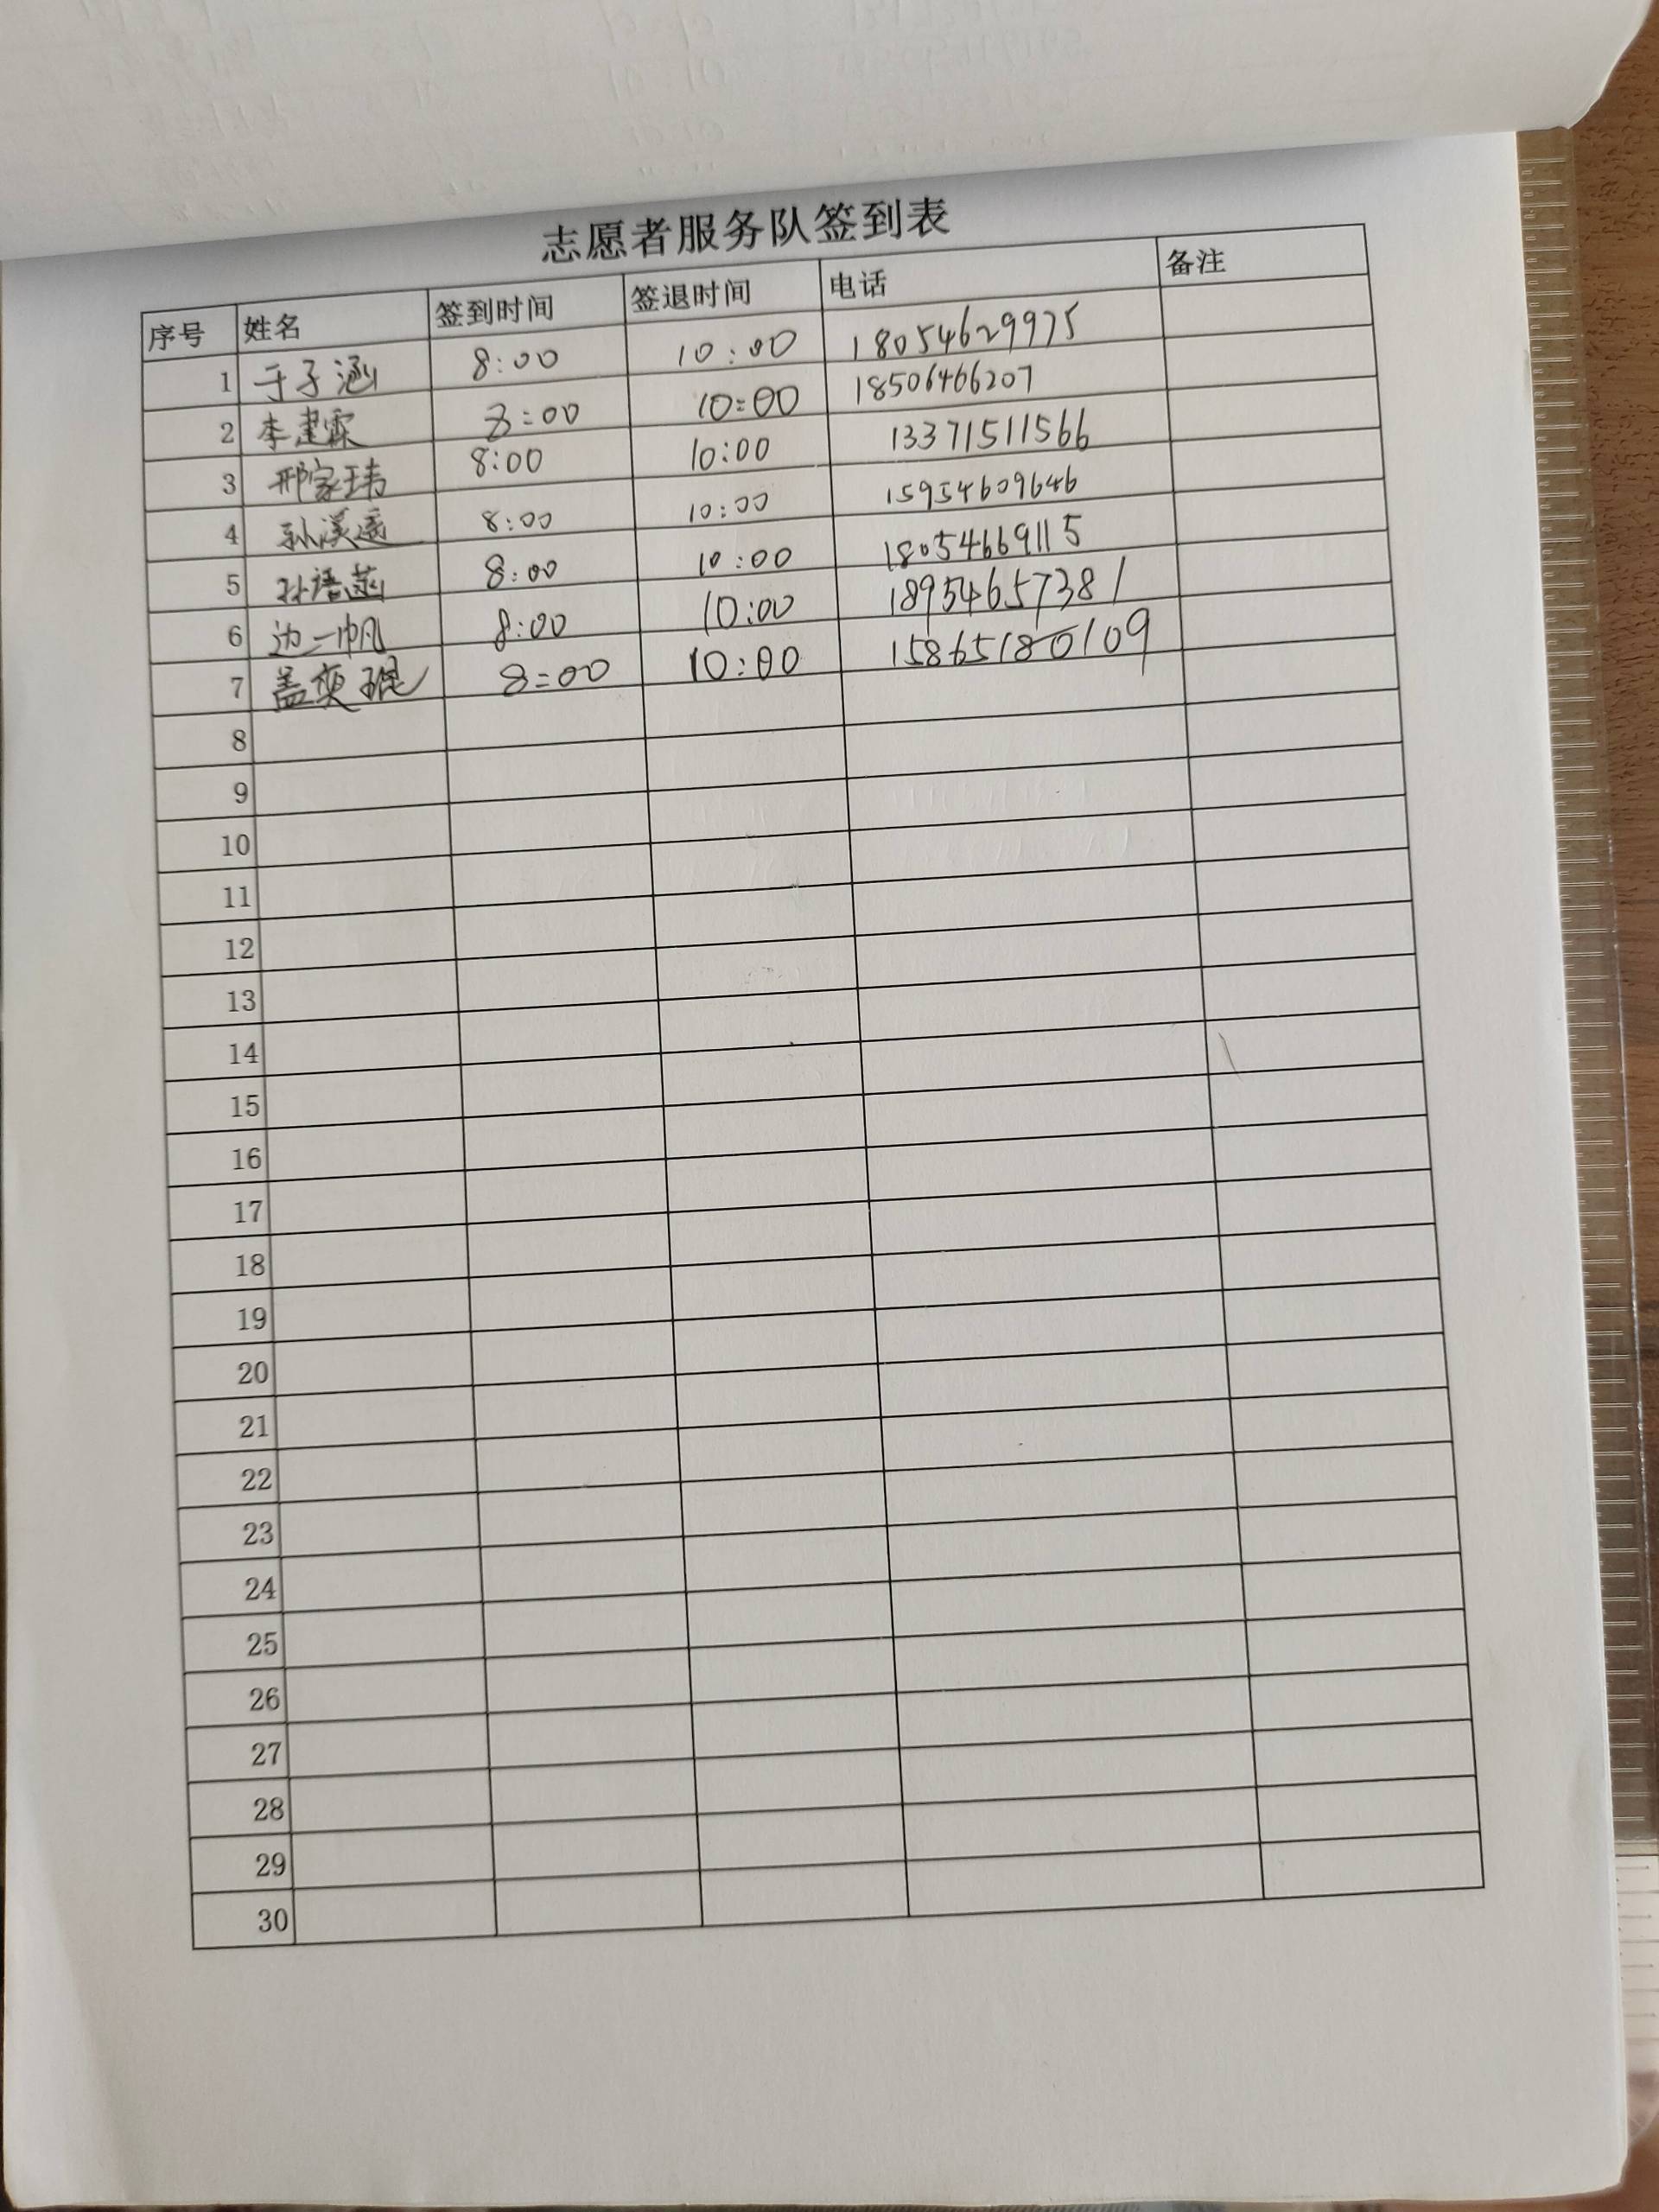 志愿者服务队签到表
序号 姓名 签到时间 签退时间 电话 备注
1 于子涵 8:00 10:00 18054629975
2 李建霖 8:00 10:00 18506466207
3 邢家玮 8:00 10:00 13371511566
4 孙溪遥 8:00 10:00 15954609646
5 孙语菡 8:00 10:00 18054669115
6 边一帆 8:00 10:00 18954657381
7 盖奕琨 8:00 10:00 15865180109
8
9
10
11
12
13
14
15
16
17
18
19
20
21
22
23
24
25
26
27
28
29
30